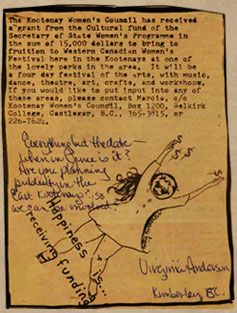 The Kootenay Women's Council has received
a grant from the Cultural fund of the
Secretary of State Women's Programme in
the sum of 15,000 dollars to bring to
fruition to Western Canadian Women's
Festival here in the Kootenays at one of
the lovely parks in the area. It will be
a four day festival of the arts, with music,
dance, theatre, art, crafts, and workshops.
If you would like to put input into any of
these areas, please contact Marcia, c/o
Kootenay Women's Council, Box 1200, Selkirk
College, Castlegar, B.C., 365-3815, or
226-7624.
Everything but the date -
when in June is it?
Are you planning
publicity in the
East Kootenays, so
we can be involved
Happiness is...
receiving funding
Virginia Anderson
Kimberley, BC.
$
$
$